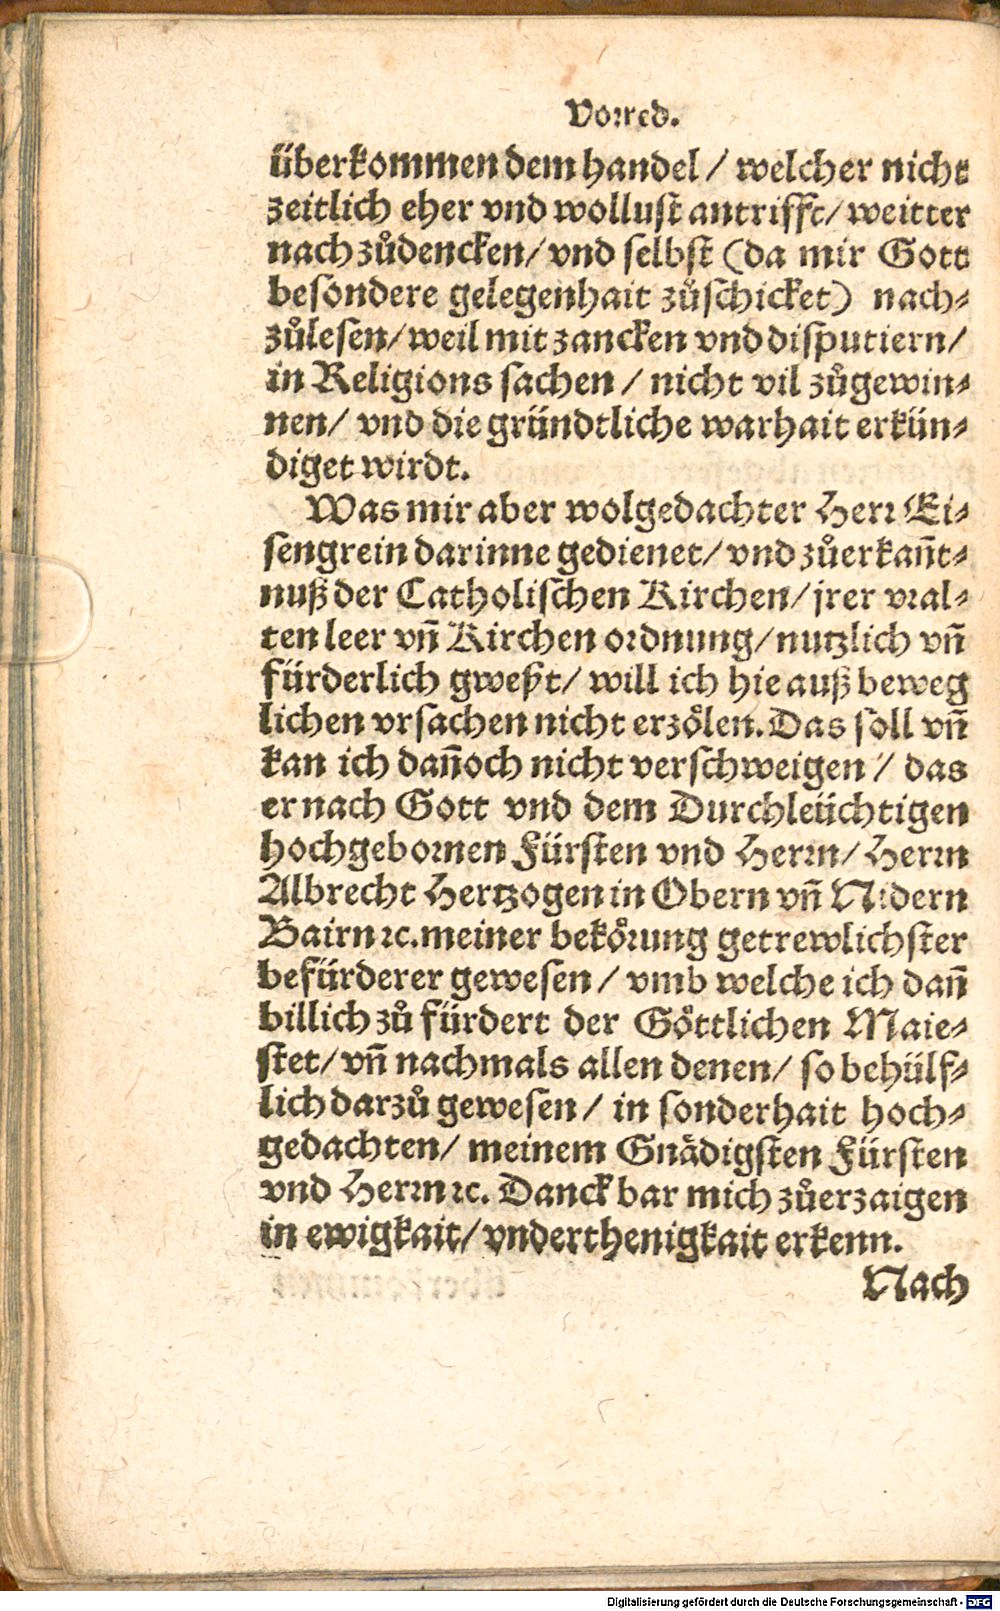 Vorred.
überkommen dem handel / welcher nicht
zeitlich eher vnd wollust antrifft / weitter
nach zůdencken / vnd selbst (da mir Gott
besondere gelegenhait zůschicket) nach⸗
zůlesen / weil mit zancken vnd disputiern /
in Religions sachen / nicht vil zůgewin⸗
nen / vnd die gründtliche warhait erkün⸗
diget wirdt.
Was mir aber wolgedachter Herr Ei⸗
sengrein darinne gedienet / vnd zůerkañt⸗
nuß der Catholischen Kirchen / jrer vral⸗
ten leer vñ Kirchen ordnung / nutzlich vñ
fürderlich gweßt / will ich hie auß beweg
lichen vrsachen nicht erzölen. Das soll vñ
kan ich dañoch nicht verschweigen / das
er nach Gott vnd dem Durchleüchtigen
hochgebornen Fürsten vnd Herrn / Herrn
Albrecht Hertzogen in Obern vñ Nidern
Bairn ꝛc. meiner bekörung getrewlichster
befürderer gewesen / vmb welche ich dañ
billich zů fürdert der Göttlichen Maie⸗
stet / vñ nachmals allen denen / so behülf⸗
lich darzů gewesen / in sonderhait hoch⸗
gedachten / meinem Gnädigsten Fürsten
vnd Herrn ꝛc. Danckbar mich zůerzaigen
in ewigkait / vnderthenigkait erkenn.
Nach
Digitalisierung gefördert durch die Deutsche Forschungsgemeinschaft - DFG